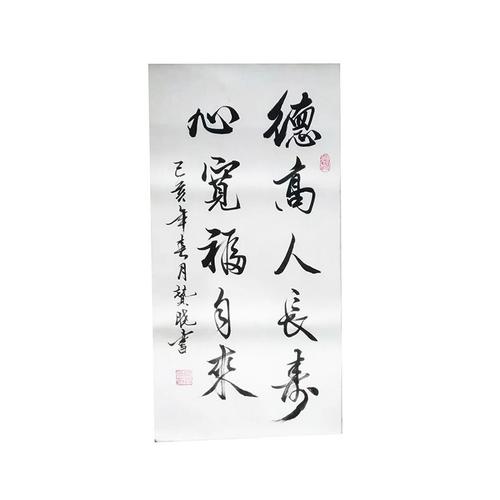 德高人长寿
心寬福自來
己亥年春月贊曉書